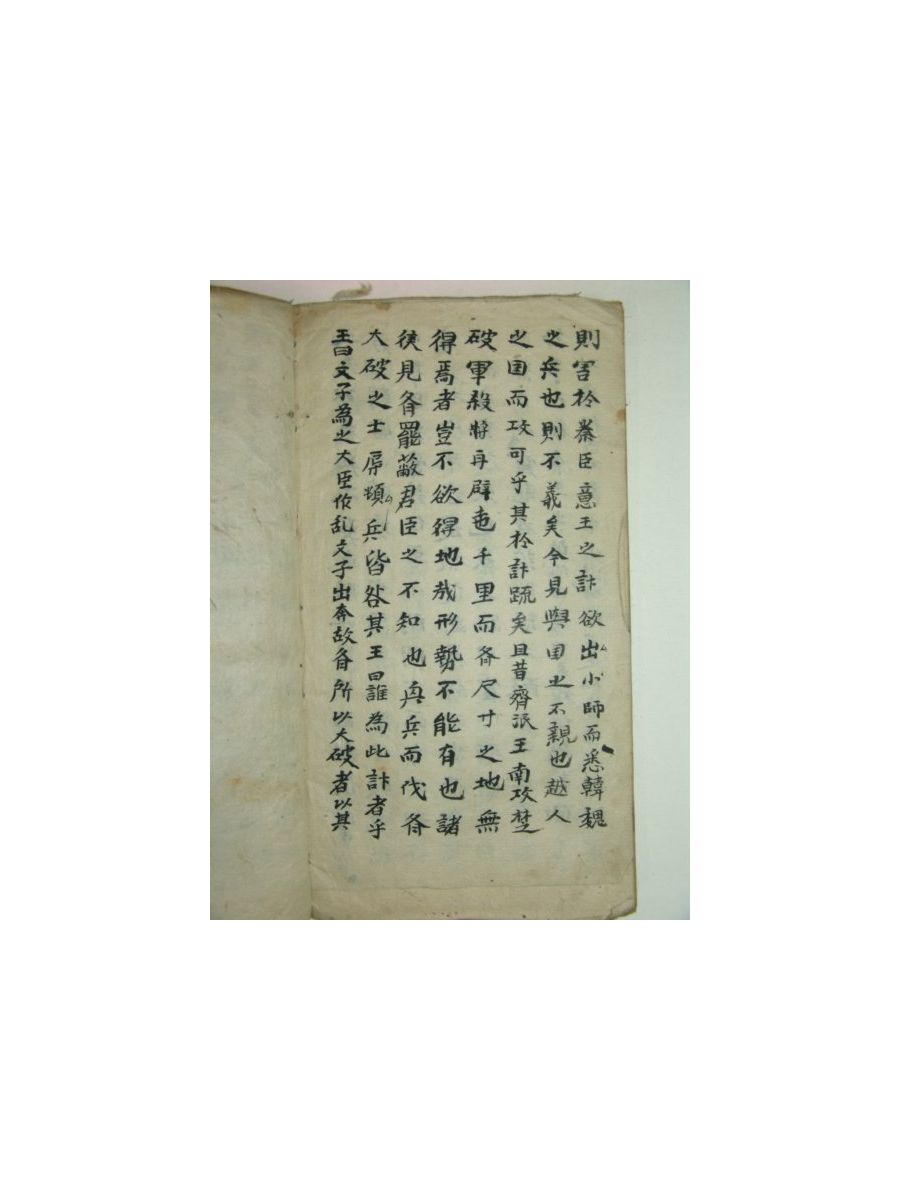 則害於秦臣意王之計欲出小師而悉韓魏
之兵也則不義矣今見與囯之不親也越人
之囯而攻可乎其於計疏矣且昔齊湣王南攻楚
破軍殺將再辟地千里而齐尺寸之地無
得焉者豈不欲得地哉形勢不能有也諸
侯見齐罷敝君臣之不和也興兵而伐齐
大破之士辱頓兵皆咎其王曰誰為此計者乎
王曰文子為之大臣作乱文子出奔故齐所以大破者以其